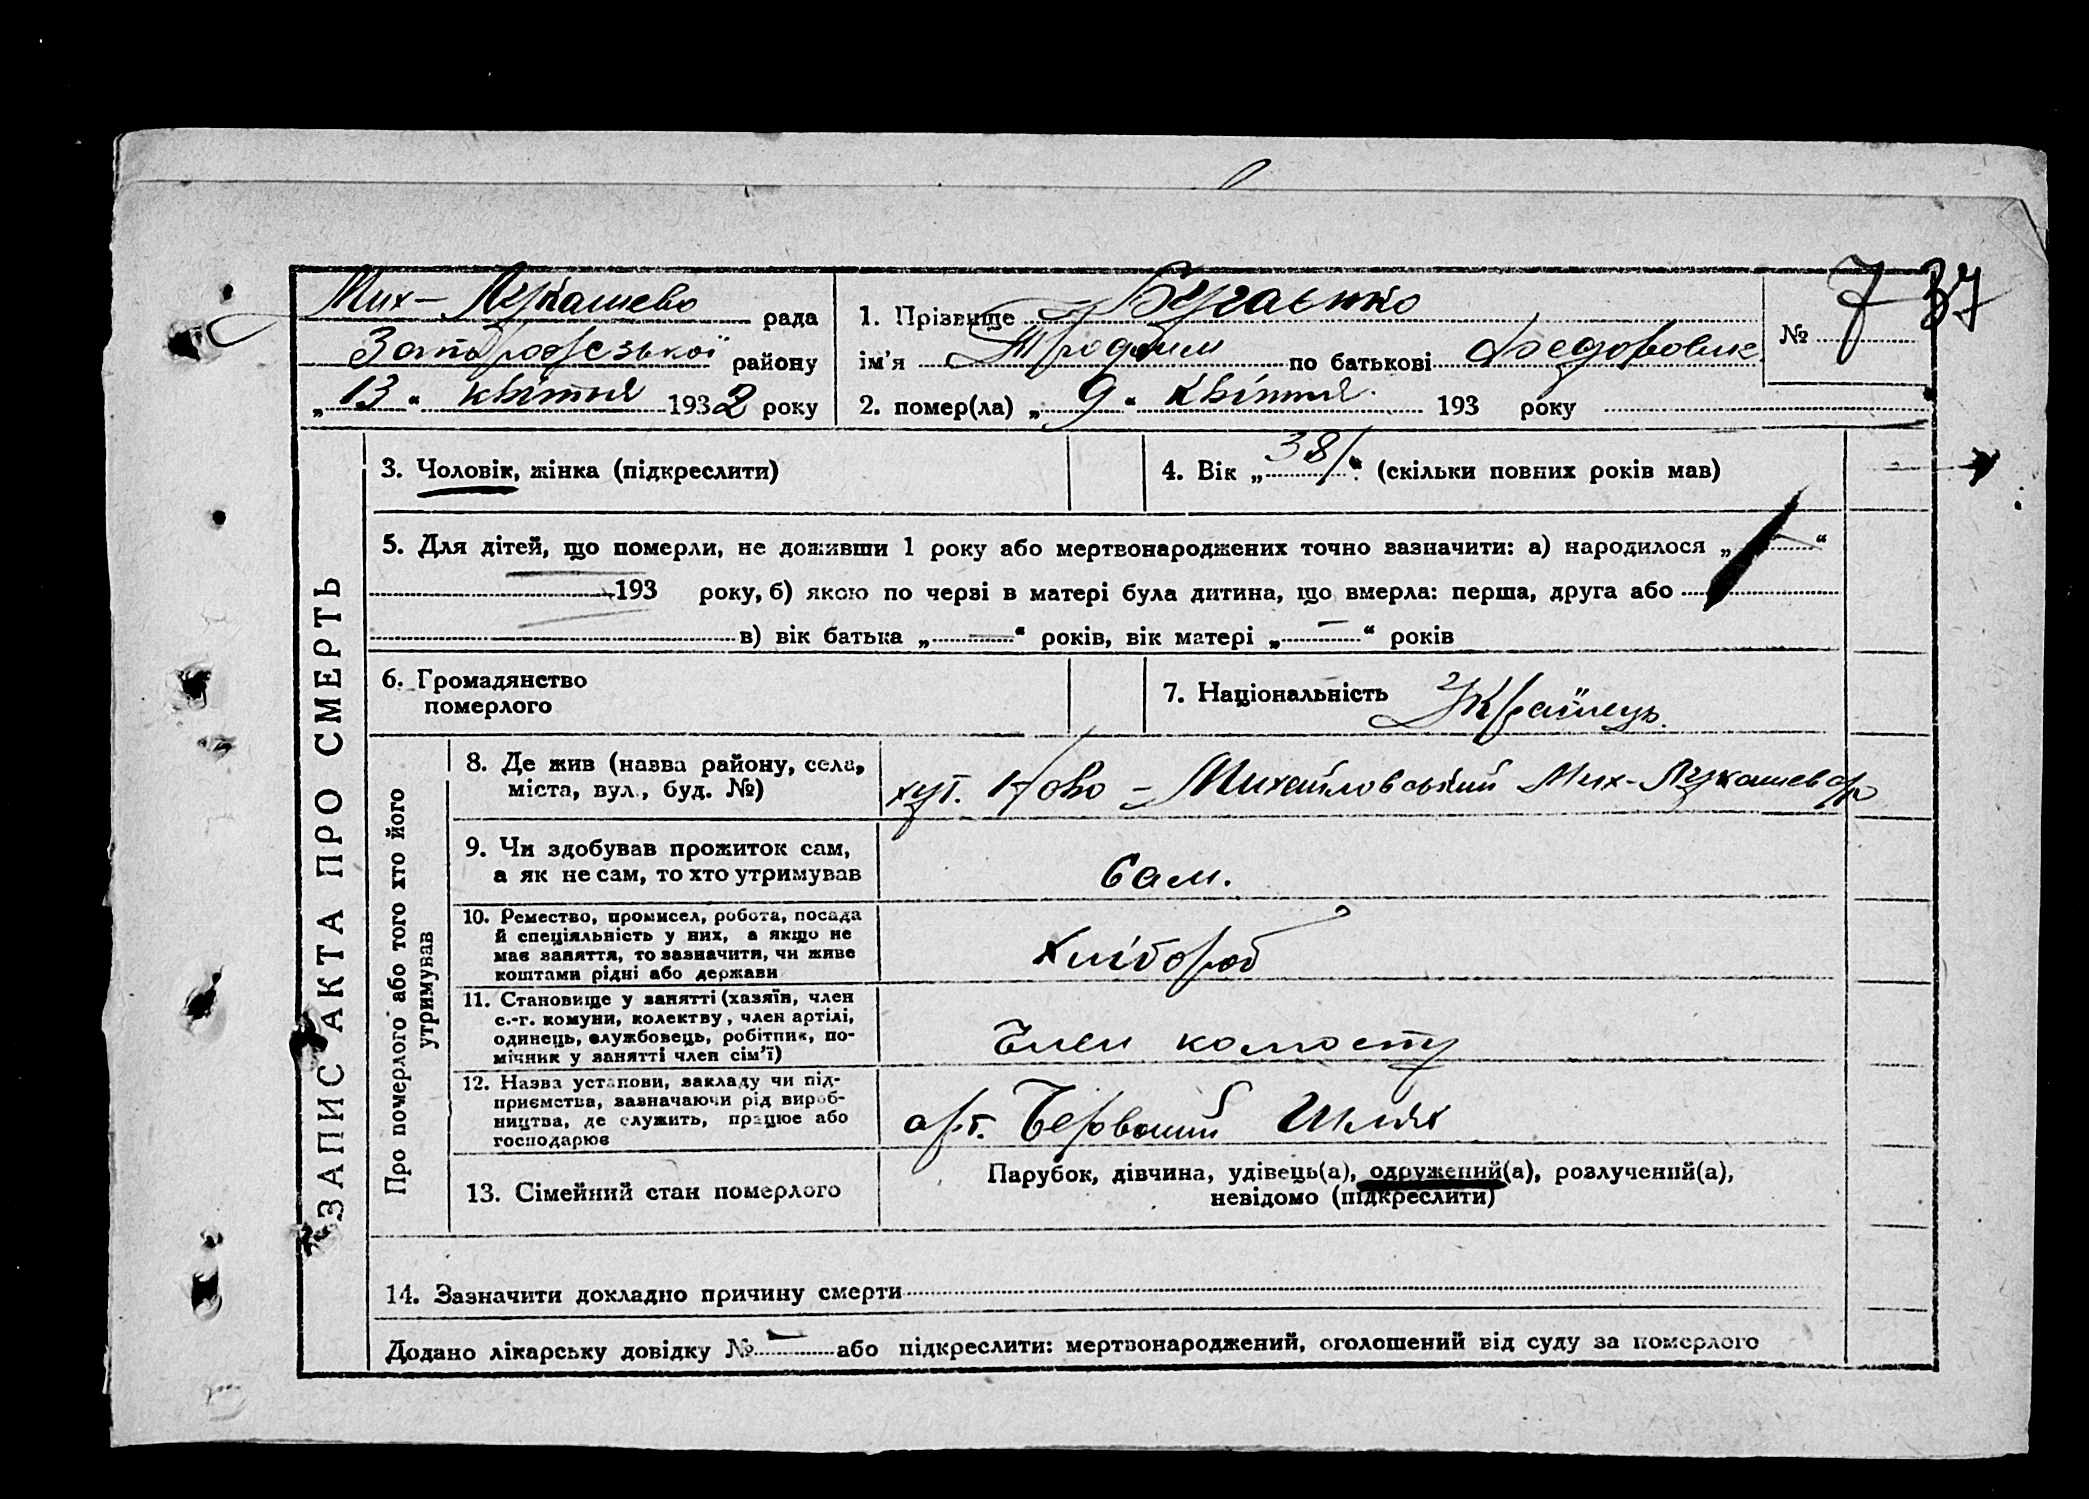 Мих-Лукашево рада
Запорізької району
„13“ квітня 1932 року
1. Прізвище Бугаєнко
ім'я Трофим по батькові Федорович
2. помер(ла) „9“ квітня 193 року
№ 7 37
ЗАПИС АКТА ПРО СМЕРТЬ
3. Чоловік, жінка (підкреслити)
4. Вік „38“ (скільки повних років мав)
5. Для дітей, що померли, не доживши 1 року або мертвонароджених точно зазначити: а) народилося „ “
193 року, б) якою по черзі в матері була дитина, що вмерла: перша, друга або
в) вік батька „—“ років, вік матері „—“ років
6. Громадянство
померлого
7. Національність Українець.
Про померлого або того хто його
утримував
8. Де жив (назва району, села,
міста, вул., буд. №)
хут. Ново-Михайловський Мих-Лукашев с/р
9. Чи здобував прожиток сам,
а як не сам, то хто утримував
Сам.
10. Ремество, промисел, робота, посада
й спеціяльність у них, а якщо не
має заняття, то зазначити, чи живе
коштами рідні або держави
хлібороб
11. Становище у занятті (хазяїн, член
с.-г. комуни, колектву, член артілі,
одинець, службовець, робітник, по-
мічник у занятті член сім'ї)
Член колгоспу
12. Назва установи, закладу чи під-
приємства, зазначаючи рід вироб-
ництва, де служить, працює або
господарює
арт. Червоний Шлях
13. Сімейний стан померлого
Парубок, дівчина, удівець(а), одружений(а), розлучений(а),
невідомо (підкреслити)
14. Зазначити докладно причину смерти
Додано лікарську довідку № — або підкреслити: мертвонароджений, оголошений від суду за померлого